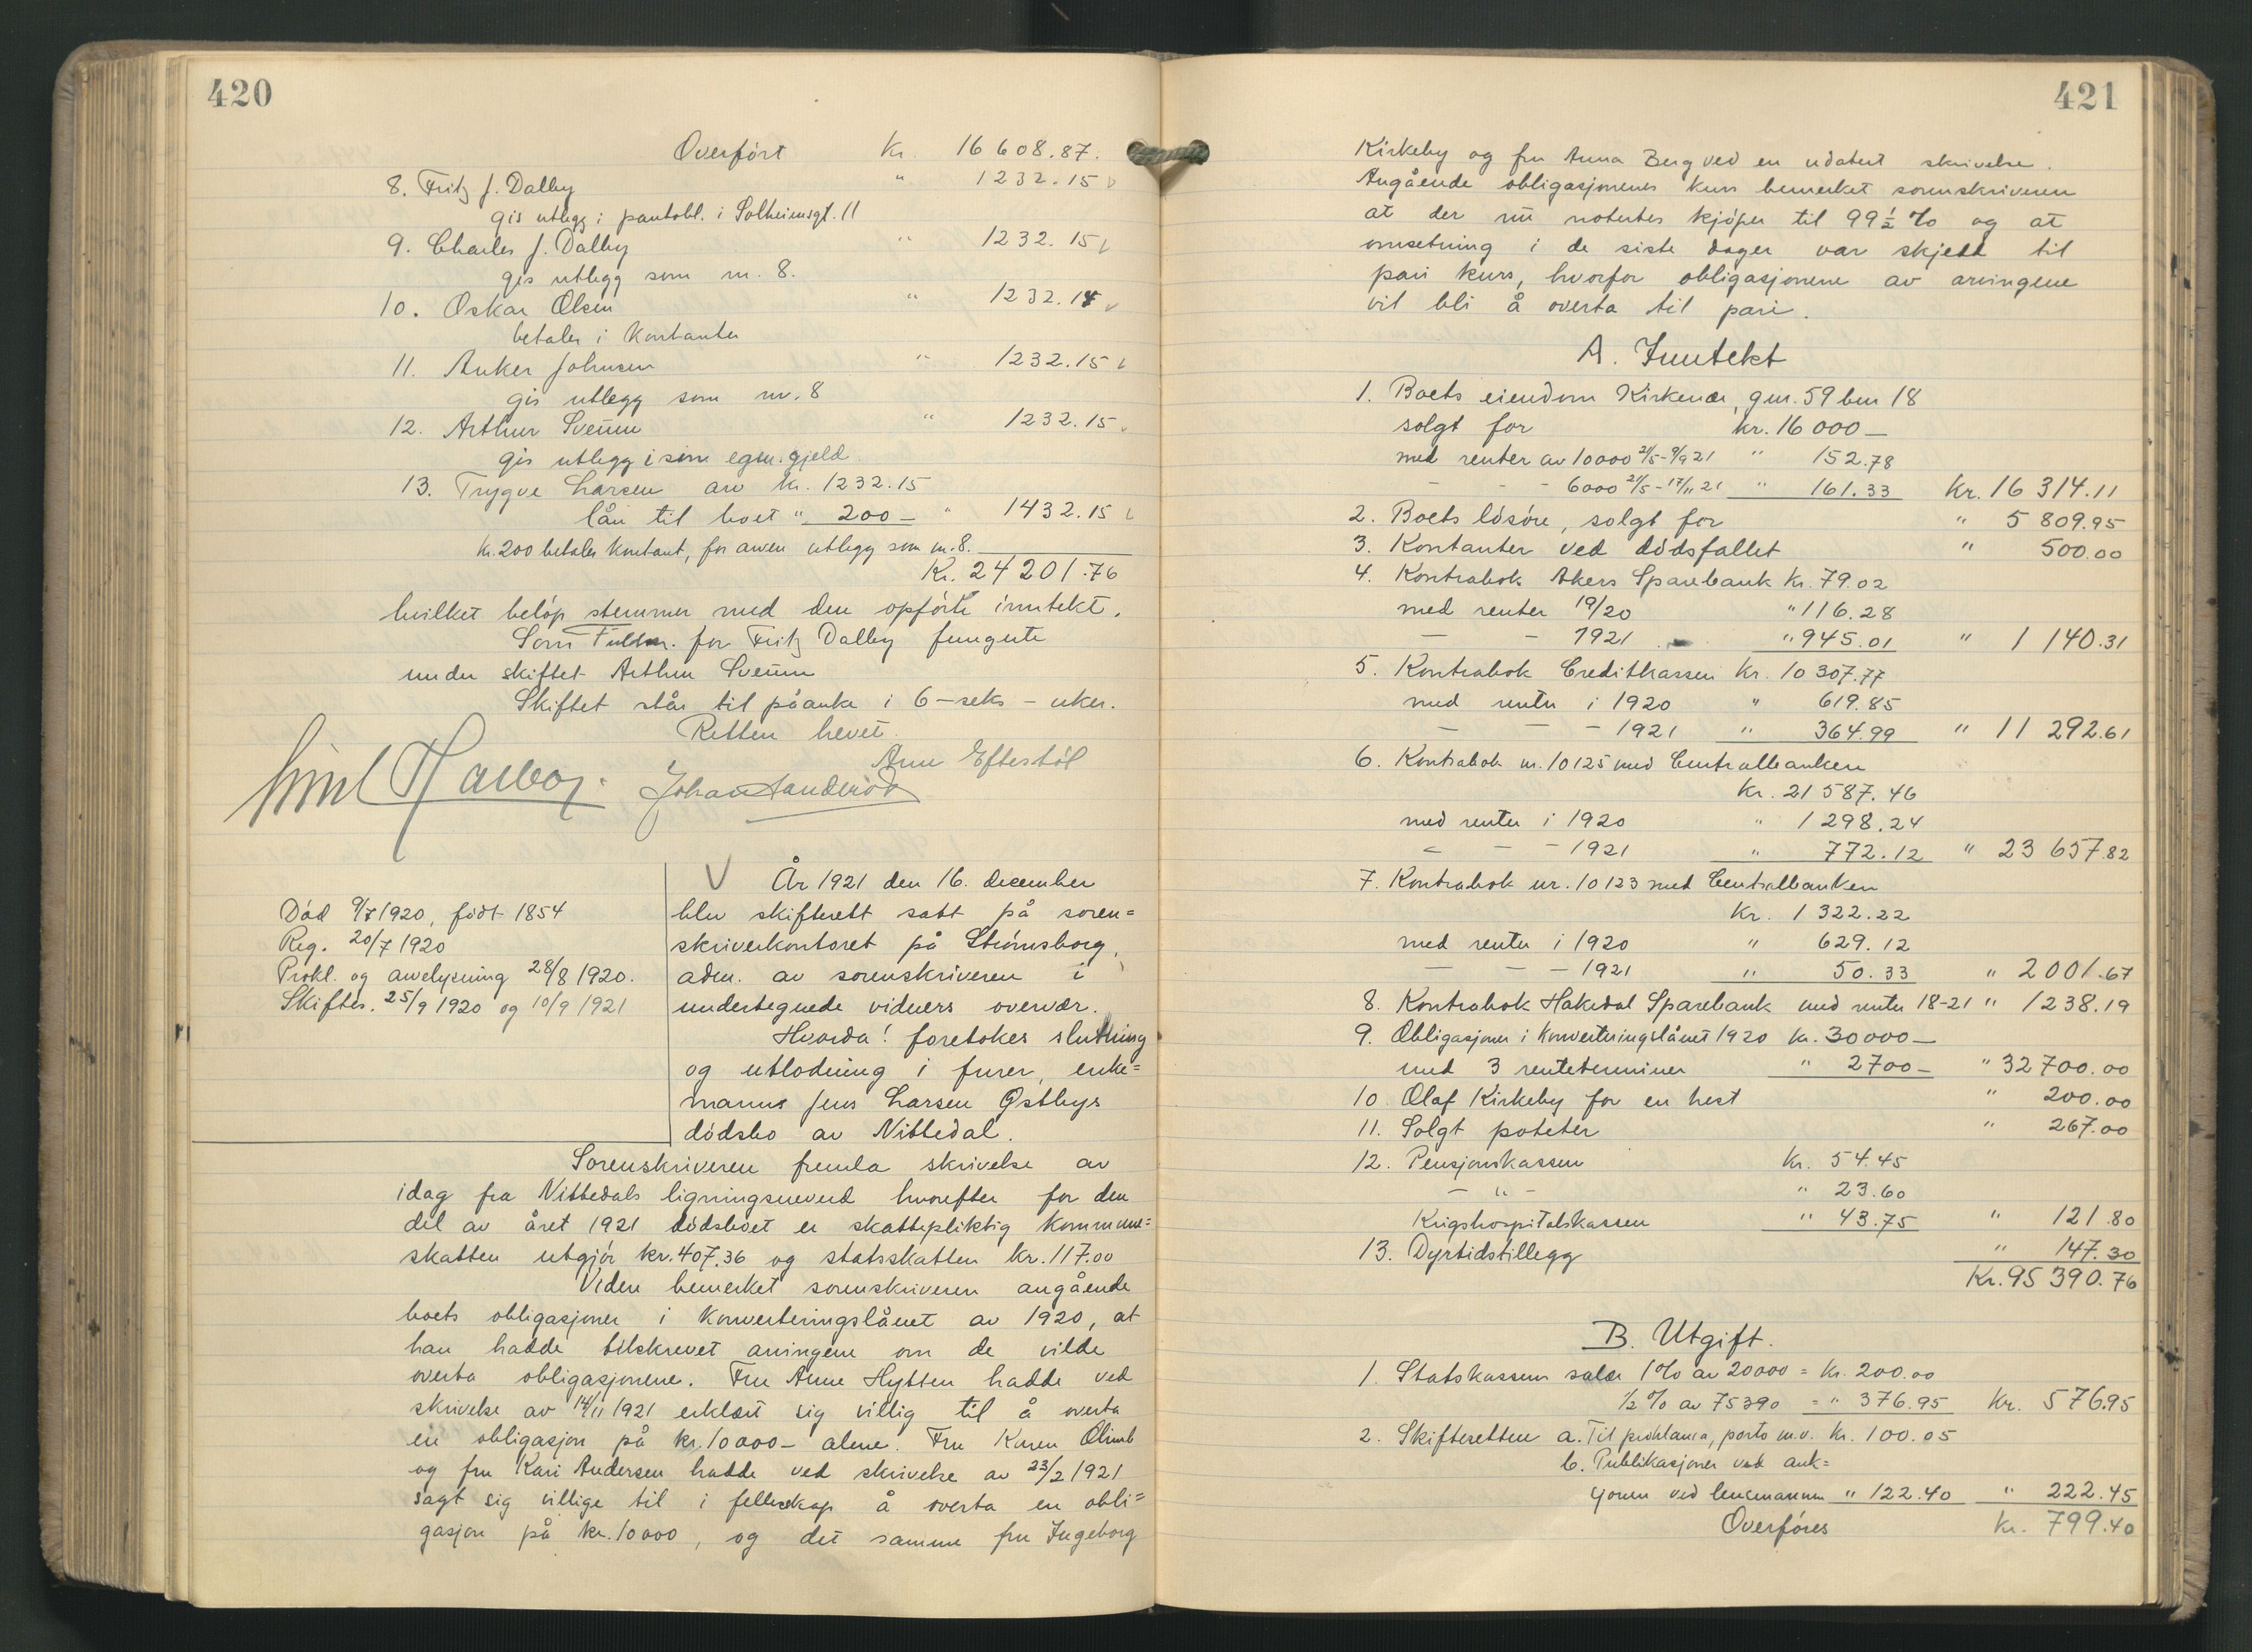 420
Overfört Kr. 16 608.87.
8. Fritz J. Dalby " 1232.15
gis utlegg i pantobl. i Solheimsgt. 11
9. Charles J. Dalby " 1232.15
gis utlegg som nr. 8.
10. Oskar Olsen " 1232.14
betales i kontanter
11. Anker Johnsen " 1232.15
gis utlegg som nr. 8
12. Arthur Sveum " 1232.15
gis utlegg i sin egen gjeld
13. Trygve Larsen arv kr. 1232.15
lån til boet " 200 - " 1432.15
kr. 200 betales kontant, for arven utlegg som nr. 8.
Kr. 24 201.76
hvilket beløp stemmer med den opförte inntekt.
Som Fullm. for Fritz Dalby fungerte
under skiftet Arthur Sveum
Skiftet står til påanke i 6 - seks - uker.
Retten hevet.
Anne Eftestöl
Johan Sanderöd
Död 9/7 1920, födt 1854
Reg. 20/7 1920
Prokl. og arvelysning 28/8 1920.
Skiftes. 25/9 1920 og 10/9 1921
År 1921 den 16. december
blev skifterett satt på soren=
skriverkontoret på Strömsborg,
adm. av sorenskriveren i
undertegnede vidners overvær.
Hvorda! foretokes slutning
og utlodning i furer, enke=
manns Jens Larsen Østbys
dödsbo av Nittedal.
Sorenskriveren fremla skrivelse av
idag fra Nittedals ligningsnevnd hvorefter for den
del av året 1921 dödsboet er skattepliktig kommune=
skatten utgjör kr. 407.36 og statsskatten kr. 117.00
Videre bemerket sorenskriveren angående
boets obligasjoner i Konverteringslånet av 1920, at
han hadde tilskrevet arvingene om de vilde
overta obligasjonene. Fru Anne Hytten hadde ved
skrivelse av 14/11 1921 erklært sig villig til å overta
en obligasjon på kr. 10000 - alene. Fru Karen Olimb
og fru Kari Andersen hadde ved skrivelse av 23/2 1921
sagt sig villige til i felleskap å overta en obli=
gasjon på kr. 10000, og det samme fru Ingeborg
421
Kirkeby og fru Anna Berg ved en udatert skrivelse.
Angående obligasjonenes kurs bemerket sorenskriveren
at der nu notertes kjöper til 99 1/2 % og at
omsetning i de siste dager var skjedd til
pari kurs, hvorfor obligasjonene av arvingene
vil bli å overta til pari.
A. Inntekt
1. Boets eiendom Kirkenær, gnr. 59 bnr 18
solgt for kr. 16 000 -
med renter av 10000 21/5 - 9/9 21 " 152.78
- - - 6000 21/5 - 17/11 21 " 161.33 Kr. 16 314.11
2. Boets lösöre, solgt for " 5 809.95
3. Kontanter ved dödsfallet " 500.00
4. Kontrabok Akers Sparebank kr. 79.02
med renter 19/20 " 116.28
- - 1921 " 945.01 " 1 140.31
5. Kontrabok Creditkassen kr. 10 307.77
med renter i 1920 " 619.85
- - - 1921 " 364.99 " 11 292.61
6. Kontrabok nr. 10125 med Centralbanken
kr. 21 587.46
med renter i 1920 " 1 298.24
- - - 1921 " 772.12 " 23 657.82
7. Kontrabok nr. 10123 med Centralbanken
kr. 1 322.22
med renter i 1920 " 629.12
- - - 1921 " 50.33 " 2001.67
8. Kontrabok Hakedal Sparebank med renter 18-21 " 1238.19
9. Obligasjoner i Konverteringslånet 1920 kr. 30000 -
med 3 renteterminer " 2700 - " 32 700.00
10. Olaf Kirkeby for en hest " 200.00
11. Solgt poteter " 267.00
12. Pensjonskassen kr. 54.45
- " - " 23.60
Krigshospitalskassen " 43.75 " 121.80
13. Dyrtidstillegg " 147.30
Kr. 95 390.76
B. Utgift.
1. Statskassens salær 1% av 20000 = kr. 200.00
1/2 % av 75390 = " 376.95 kr. 576.95
2. Skifteretten a. Til proklama, porto m.v. kr. 100.05
b. Publikasjoner ved auk=
sjonen ved lensmannen " 122.40 " 222.45
Overföres kr. 799.40